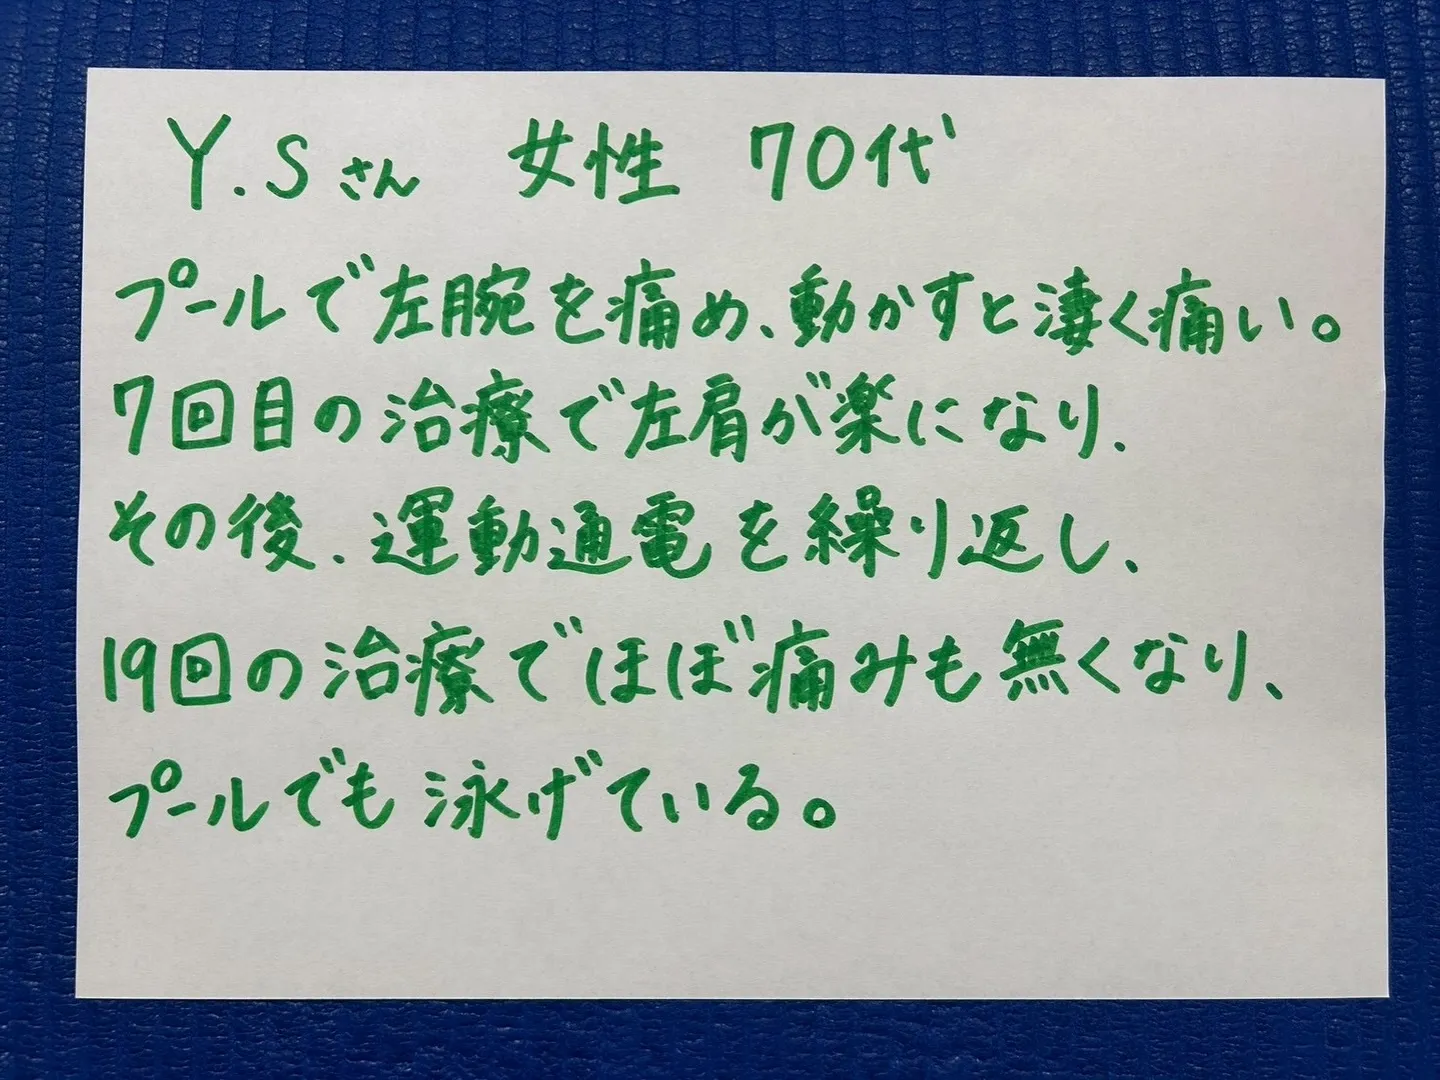 Y.Sさん 女性 70代
プールで左腕を痛め、動かすと凄く痛い。
7回目の治療で左肩が楽になり、
その後、運動通電を繰り返し、
19回の治療でほぼ痛みも無くなり、
プールでも泳げている。